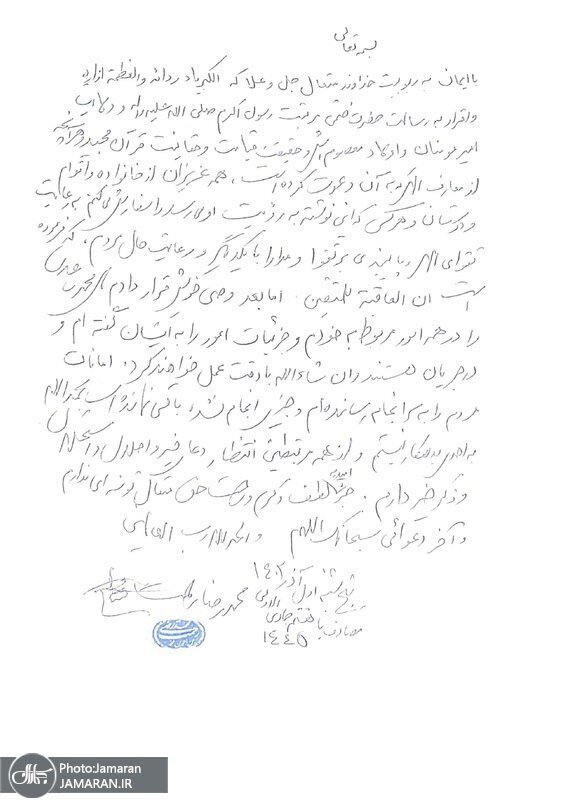 بسمه تعالی
با ایمان به ربوبیت خداوند متعال جل و علا که الکبریاء ردائه والعظمة ازاره
و اقرار به رسالت حضرت ختمی مرتبت رسول اکرم صلی الله علیه و اله و ولایت
امیر مومنان و اولاد معصوم اش و حقیقت قیامت و حقانیت قرآن مجید و هرآنچه
از معارف الهی که به آن دعوت کرده است، همه عزیزان از خانواده و اقوام
و دوستان و هر کس که این نوشته به رؤیت او می رسد را سفارش می کنم به رعایت
تقوای الهی و پایبندی بر تقوا و مدارا با یکدیگر و رعایت حال مردم، که فرموده
است ان العاقبة للمتقین. اما بعد وصی خویش قرار دادم
را در همه امور مربوط به خودم و جزئیات امور را به ایشان گفته ام و
در جریان هستند و ان شاءالله با دقت عمل خواهند کرد. امانات
مردم را به سر انجام رسانده ام و چیزی انجام نشده باقی نمانده است بحمدالله
به احدی بدهکار نیستم و از همه مرتبطین انتظار دعای خیر و احلال و استحلال
و ذکر خیر دارم. جز امید به لطف و کرم حضرت حق متعال توشه ای ندارم
و آخر دعوائی سبحانک اللهم و الحمدلله رب العالمین
پنج شنبه اول آذر ۱۴۰۲
محمدرضا
مصادف با هفتم جمادی الاولی
۱۴۴۵
Photo:Jamaran
JAMARAN.IR